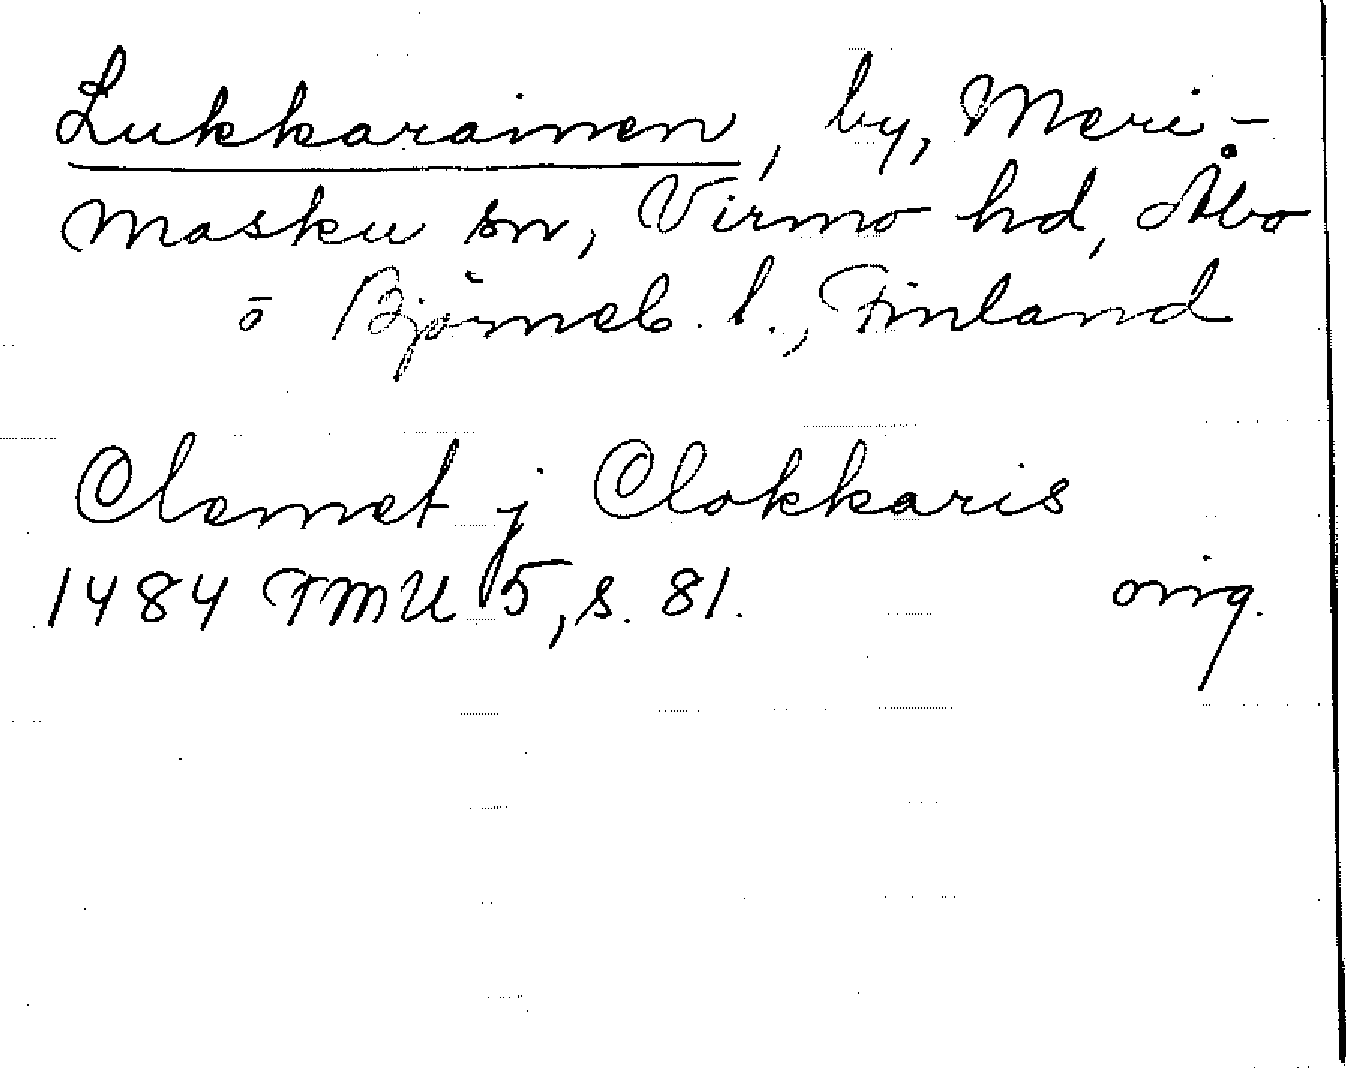 Lukkarainen, by, Meri-
masku sn, Virmo hd, Åbo
o Björneb. l., Finland
Clemet j Clokkaris
1484 FMU 5, s. 81. orig.